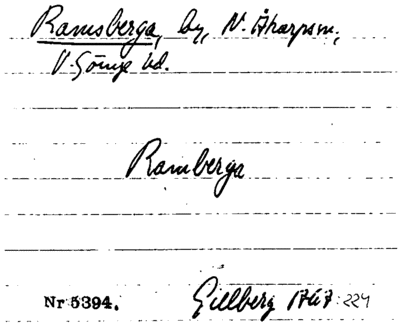 Ramsberga, by, N. Åkarps sn,
V. Göinge hd.
Ramberga
Nr 5394. Gillberg 1767:224